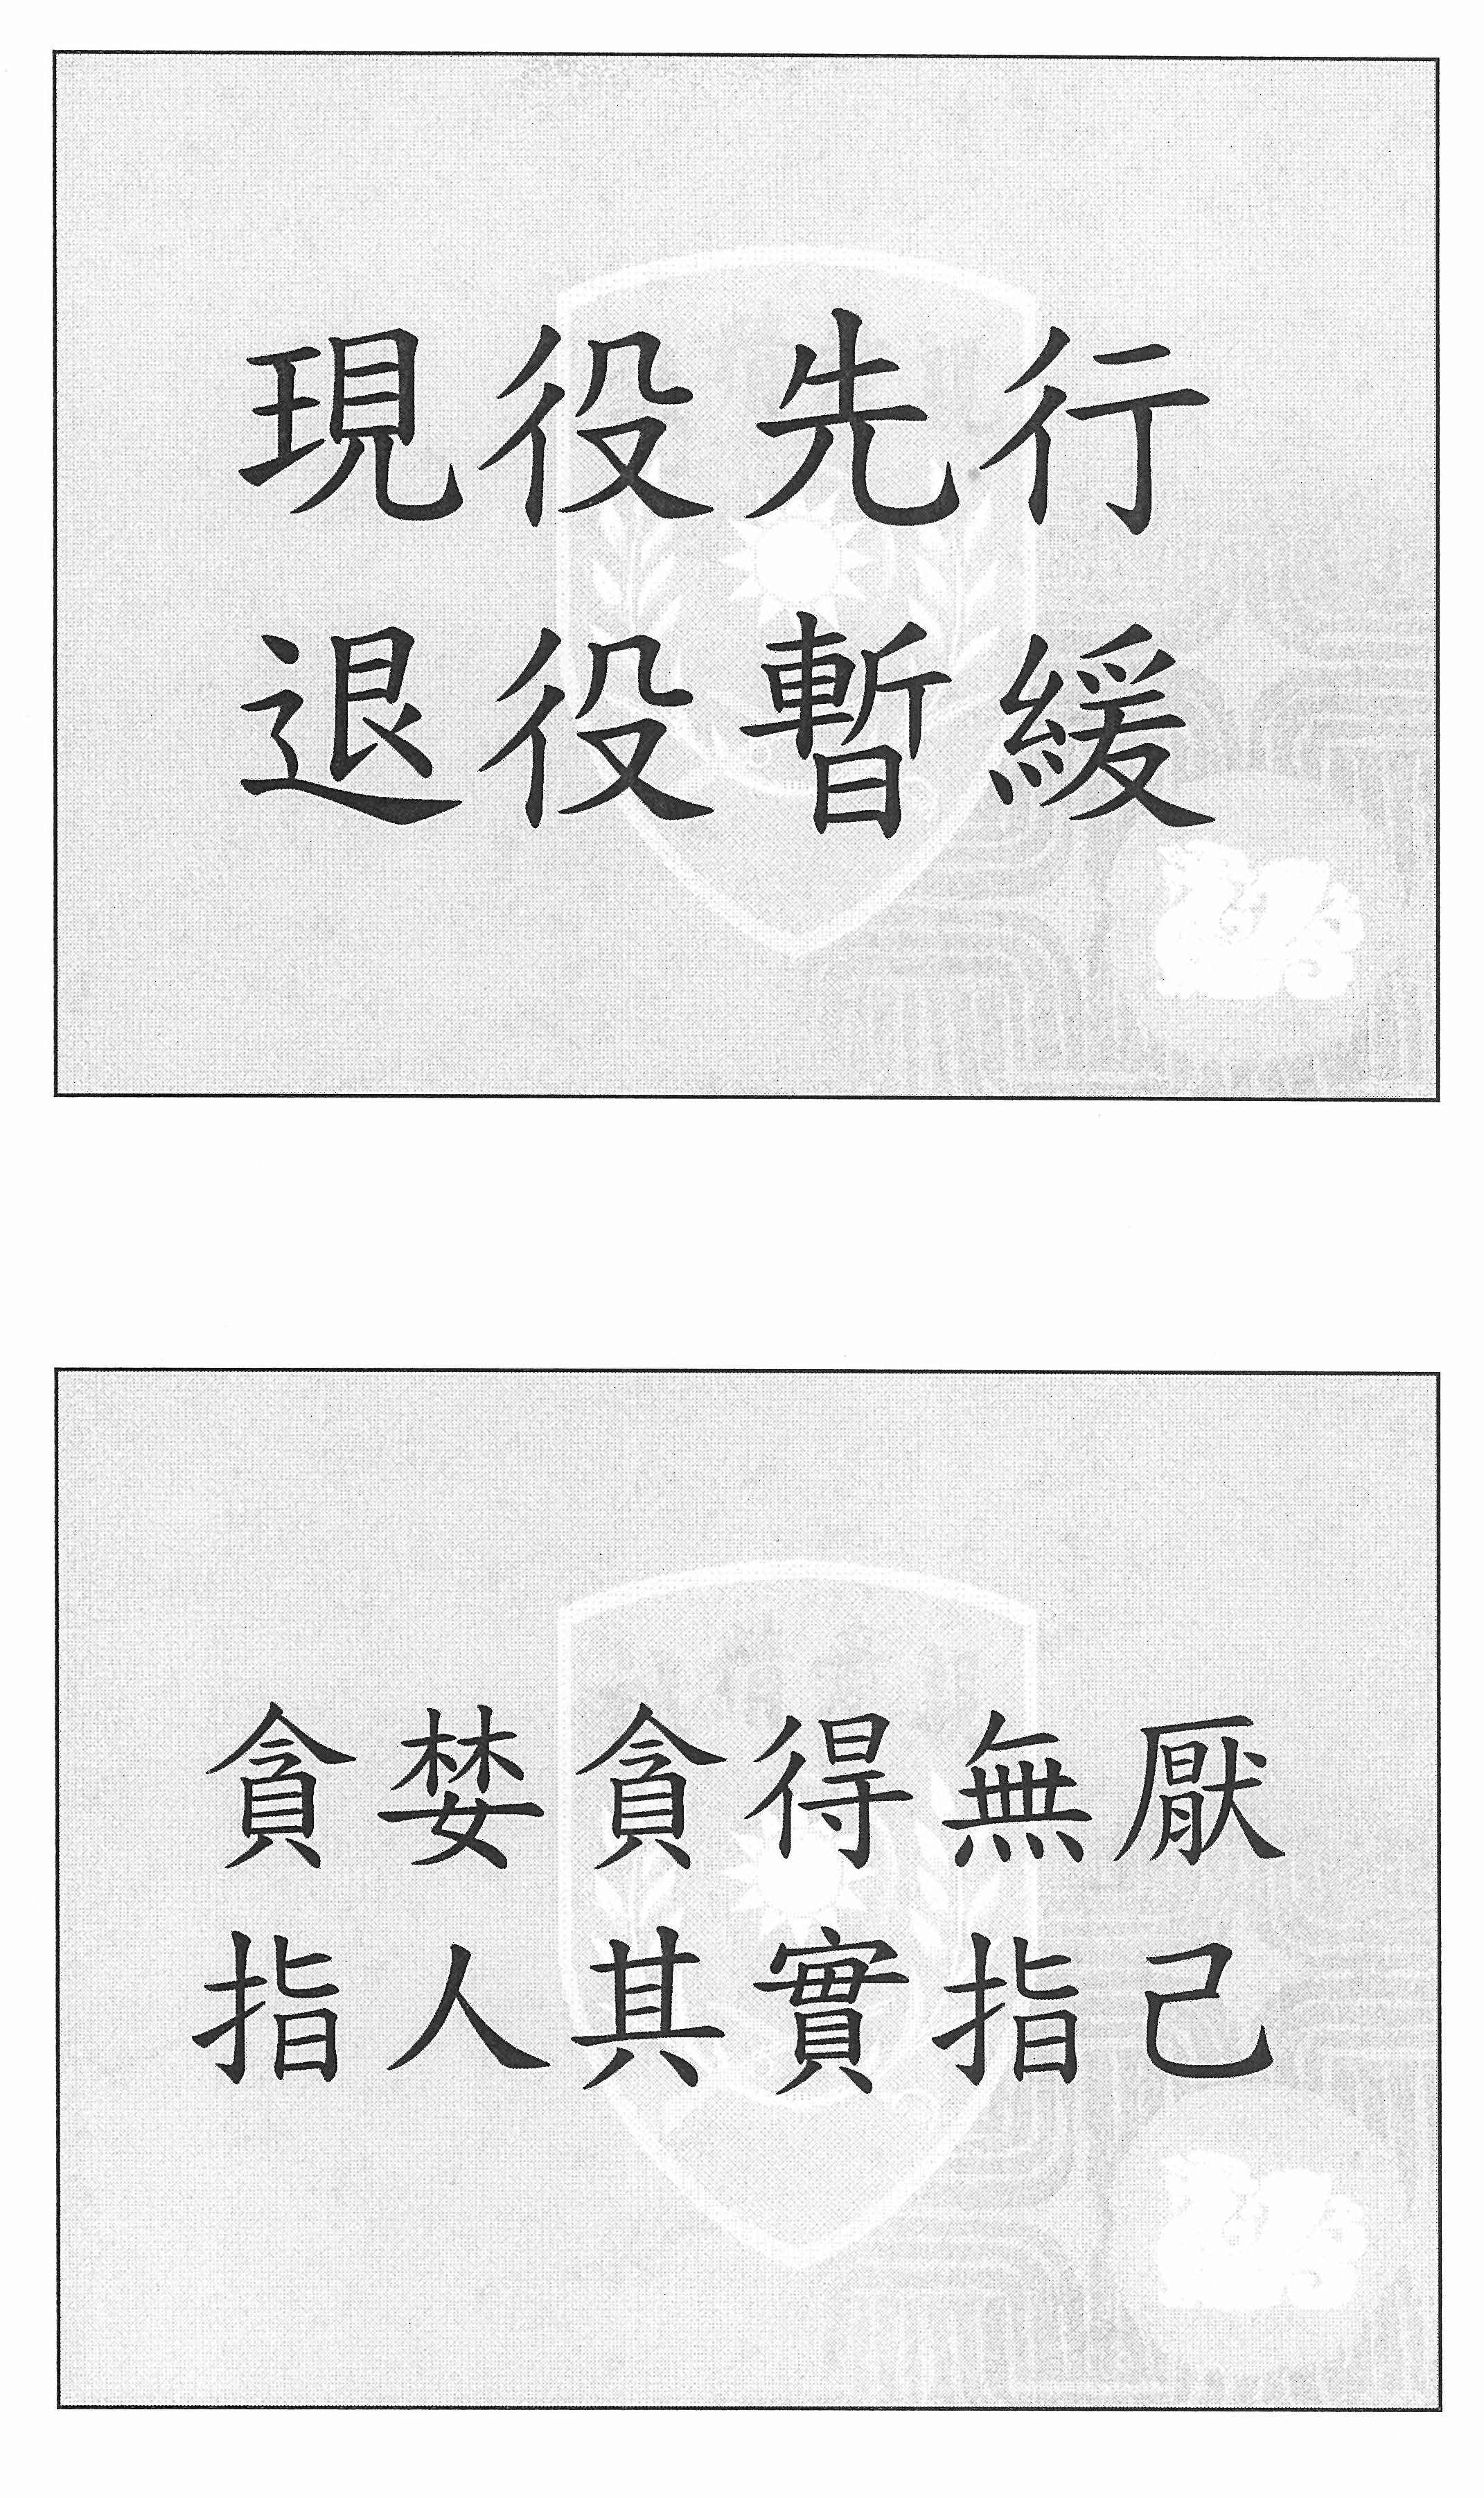 現役先行
退役暫緩
貪婪貪得無厭
指人其實指己